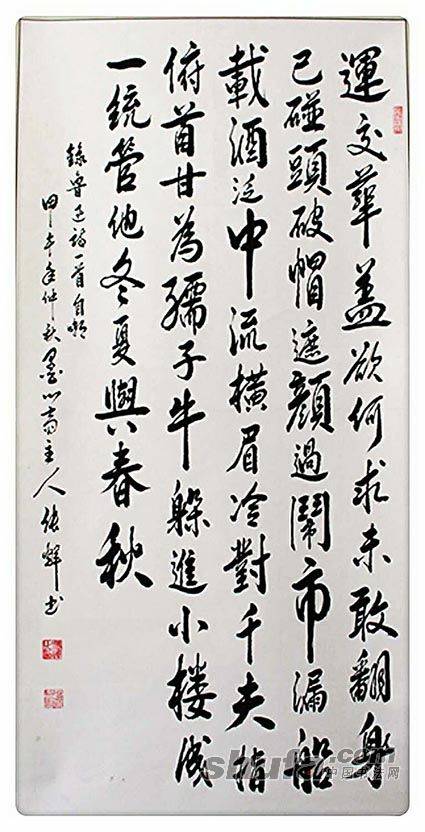 運交華蓋欲何求未敢翻身
已碰頭破帽遮顏過鬧市漏船
載酒泛中流橫眉冷對千夫指
俯首甘為孺子牛躲進小楼成
一统管他冬夏與春秋
錄魯迅詩一首自嘲
甲午年仲秋墨心斋主人張辉书
中国书法网